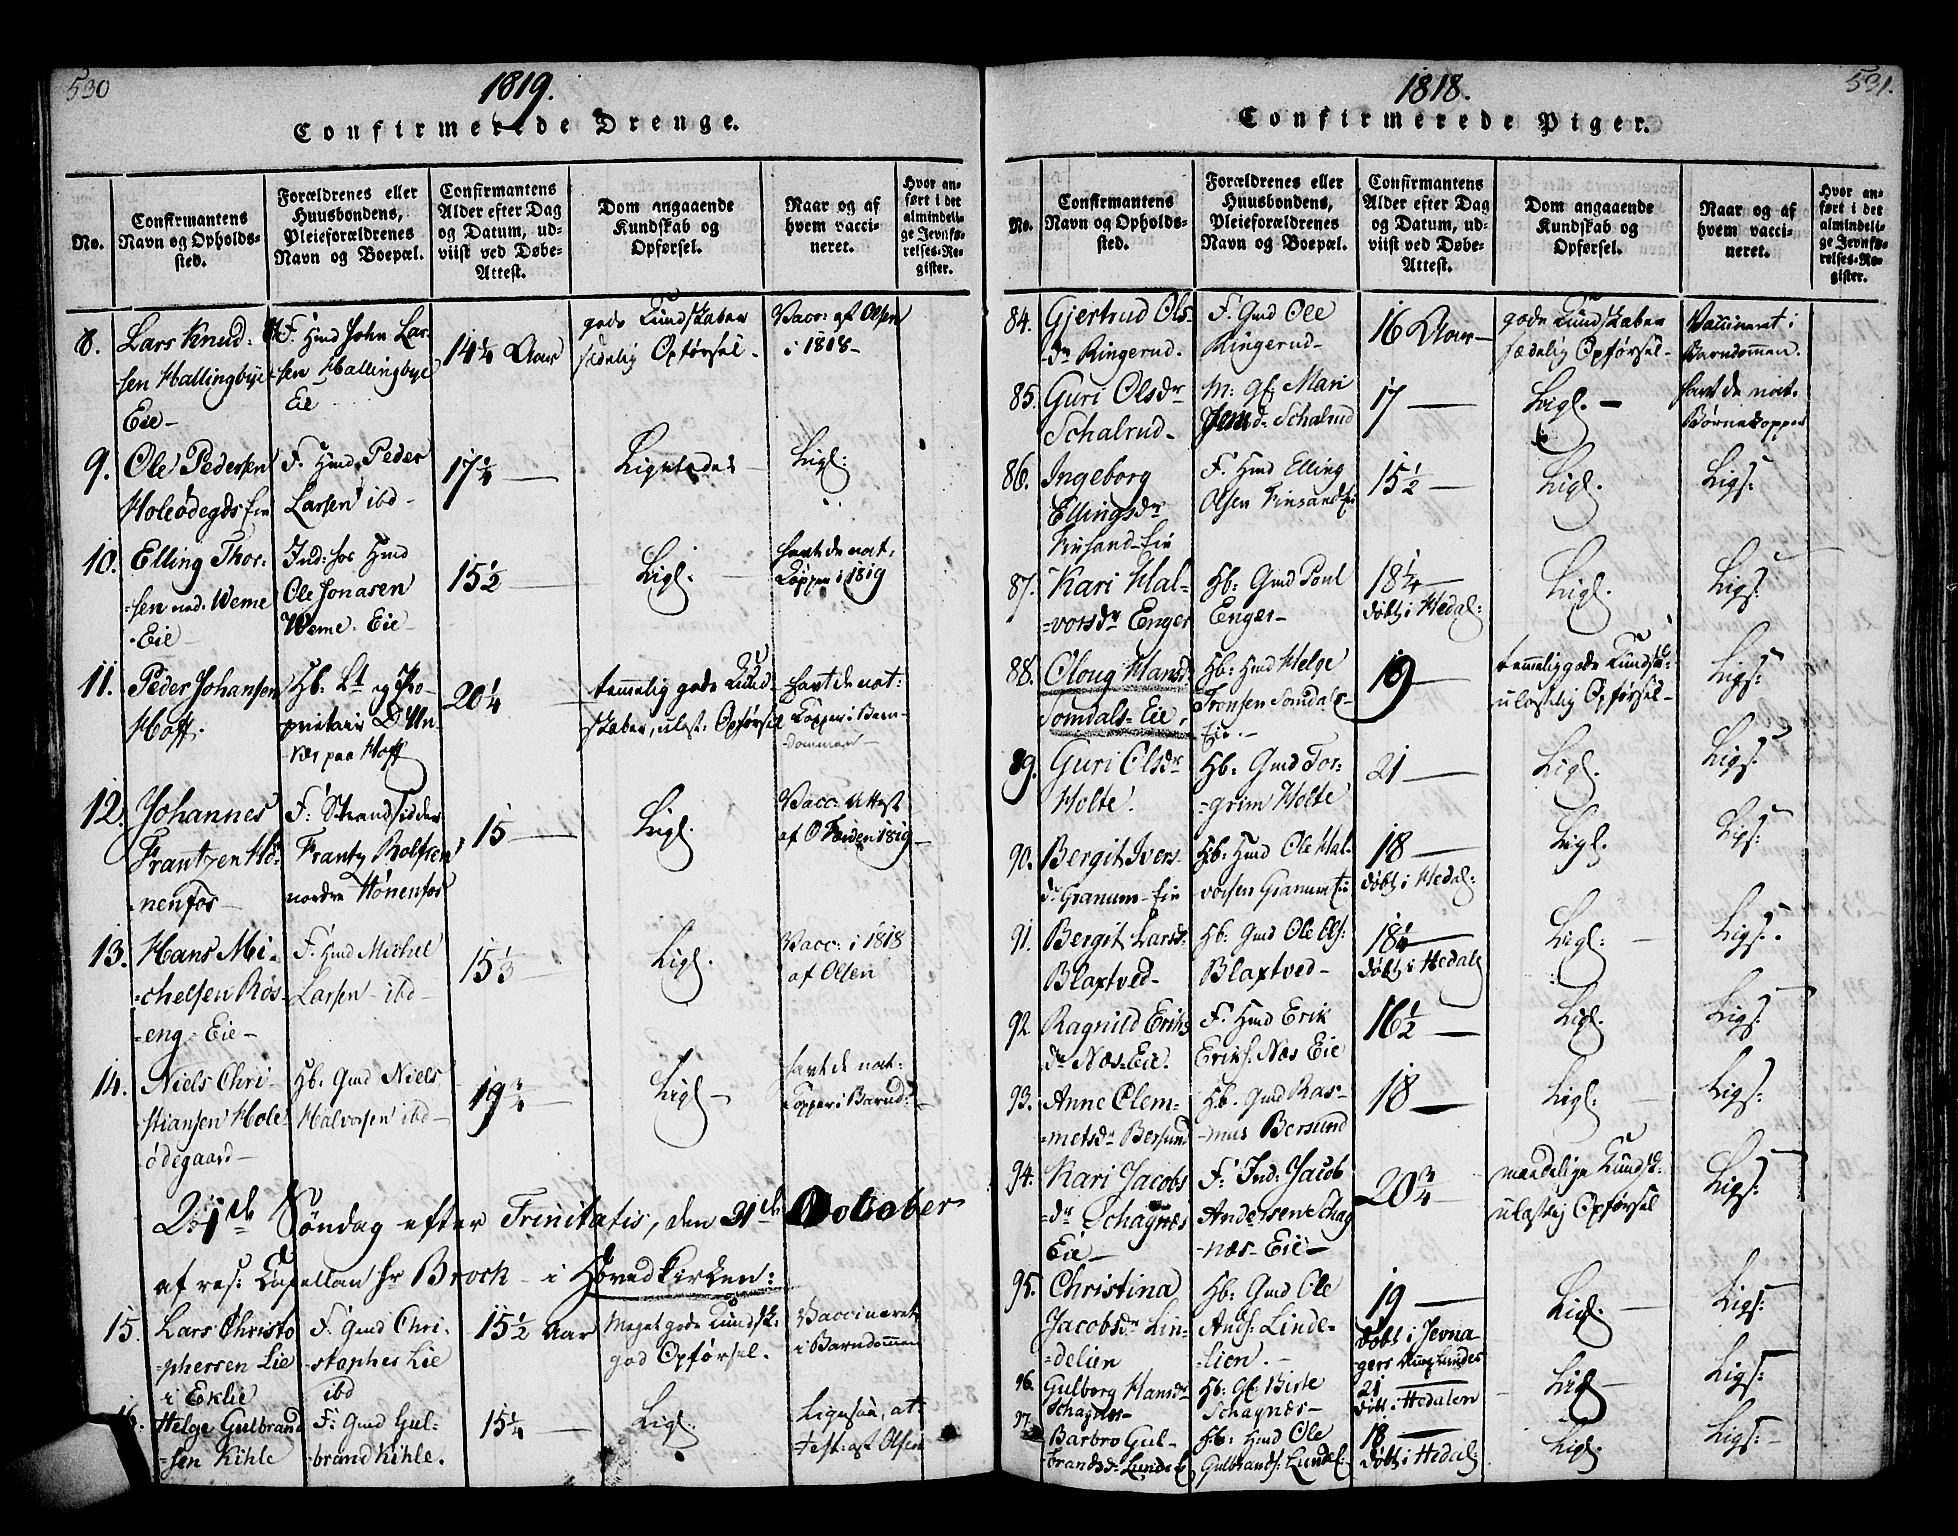 530
1819.
Confirmerede Drenge.
No.
Confirmantens
Navn og Opholds-
sted.
Forældrenes eller
Huusbondens,
Pleieforældrenes
Navn og Boepæl.
Confirmantens
Alder efter Dag
og Datum, ud-
viist ved Døbe-
Attest.
Dom angaaende
Kundskab og
Opførsel.
Naar og af
hvem vacci-
neret.
Hvor an-
ført i det
almindeli-
ge Jevnfø-
relses-Re-
gister.
8.
Lars Knud-
sen Hallingbye
Eie-
F. Hmd John Lar-
sen Hallingbye
Eie
14 1/4 Aar
gode Kundskaber
sædelig Opførsel.
Vacc: af Olsen
i 1818-
9.
Ole Pedersen
Holeødegds Eie
F. Hmd Peder
Larsen ibd-
17 1/4 —
Ligeledes
Ligl:
10.
Elling Thor-
sen nad: Weme
-Eie-
Ind: hos Hmd
Ole Jonasen
Weme. Eie-
15 1/2 —
Ligl. —
havt de nat:
Kopper i 1819
11.
Peder Johansen
Hoff.
Hb: Lt og Pro-
prietair D'Un-
ker paa Hoff
20 1/4 —
temmelig gode Kund-
skaber, ulast: Opførsel
havt de nat:
Kopper i Barn-
dommen-
12.
Johannes
Frantzen Hø-
nenfos-
F. Strandsidder
Frantz Rolfsen
nordre Hønenfos
15 —
Ligl.
Vacc: Attest
af O 1819-
13.
Hans Mi-
chelsen Røs-
eng-Eie-
F. Hmd Michel
Larsen-ibd-
15 1/3 —
Ligl.
Vacc: i 1818
af Olsen
14.
Niels Chri-
stiansen Hole-
ødegaard-
Hb: Gmd Niels
Halvorsen ibd-
19 3/4 —
Ligl-
havt de nat:
Kopper i Barnd:-
21de Søndag efter Trinitatis, den 31te October
af res: Capellan hr Brock - i Hovedkirken:
15.
Lars Christo
-phersen Lie
i Eklie
F: Gmd Chri-
stopher Lie
ibd
15 1/2 Aar
Meget gode Kundsk:
god Opførsel.
Vaccineret
i Barndommen
16.
Helge Gulbrand
-sen Kihle
F: Gmd Gul-
brand Kihle.
15 1/4 —
Ligl.
Ligesaa, at-
test: af Olsen
531.
1818.
Confirmerede Piger.
No.
Confirmantens
Navn og Opholds-
sted.
Forældrenes eller
Huusbondens,
Pleieforældrenes
Navn og Boepæl.
Confirmantens
Alder efter Dag
og Datum, ud-
viist ved Døbe-
Attest.
Dom angaaende
Kundskab og
Opførsel.
Naar og af
hvem vacci-
neret.
Hvor an-
ført i det
almindeli-
ge Jevnfø-
relses-Re-
gister.
84.
Gjertrud Ols-
dr Ringerud.
F. Gmd Ole
Ringerud-
16 Aar-
gode Kundskaber
sædelig Opførsel-
Vaccineret i
Barndommen.
85.
Guri Olsdr
Schalrud-
M: Mari
Schalrud
17 —
Ligl. —
havt de nat.
Børnekopper
86.
Ingeborg
Ellingsdr
Finsand-Eie
F. Hmd Elling
Olsen Finsand Eie
15 1/2 —
Ligl.
Ligs:
87.
Kari Hal-
=vorsdr Enger
Hb: Gmd Poul
Enger-
18 1/4 —
døbt i Hedal:
Ligl.
Ligs:
88.
Oloug Hansd
Somdals-Eie.
Hb: Hmd Helge
Tronsen Somdals-
Eie.-
19 —
temmelig gode Kundska:
ulastelig Opførsel-
Ligs:
89.
Guri Olsdr
Holte.
Hb: Gmd Tor-
=grim Holte
21 —
Ligl.
Ligs:
90.
Bergit Ivers
dr Granum-Eie
Hb: Hmd Ole Hal-
vorsen Granum Eie
18 —
døbt i Hedal:
Ligl.
Ligs:
91.
Bergit Larsd:
Blaxtved-
Hb: Gmd Ole Ols:
Blaxtved-
18 1/4 —
døbt i Hedale
Ligl: —
Ligs:.
92.
Ragnild Eriks
dr Næs-Eie.
F. Hmd Erik
Eriks: Næs Eie
16 1/2 —
Ligl.
Ligs:
93.
Anne Clem-
=metsdr Bersund
Hb. Gmd Ras-
mus Bersund
18 —
Ligl: —
Ligs:
94.
Kari Jacobs
=dr Schagnæs
Eie-
F: Ind: Jacob
Andersen Schag
-næs-Eie-
20 3/4
maadelige Kundsk:
ulastelig Opførsel
Ligs:
95.
Christina
Jacobsdr Lin-
=delien
Hb: Gmd Ole
Ands: Linde-
-lien.-
19 —
døbt i Jevna-
gers
Ligl. —
Ligs:
96.
Gulborg Hansdr
Schagnæs-
Hb: Birte
Schagnæs-
21 —
døbt i Hedalen
Ligl
Ligs:
97.
Barbro Gul-
brandsdr Lunde E
Hb: Hmd Ole
Gulbrands: Lunde E:
18 —
døbt i Hedal:
Ligl.
Ligs: -